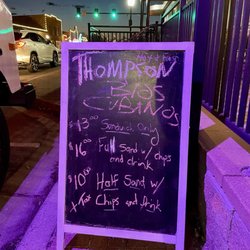 THOMPSON
BROS
CUBANOS
$13.00 Sandwich Only
$16.00 Full Sand w/ chips
and drink
$10.00 Half Sand w/
Chips and drink